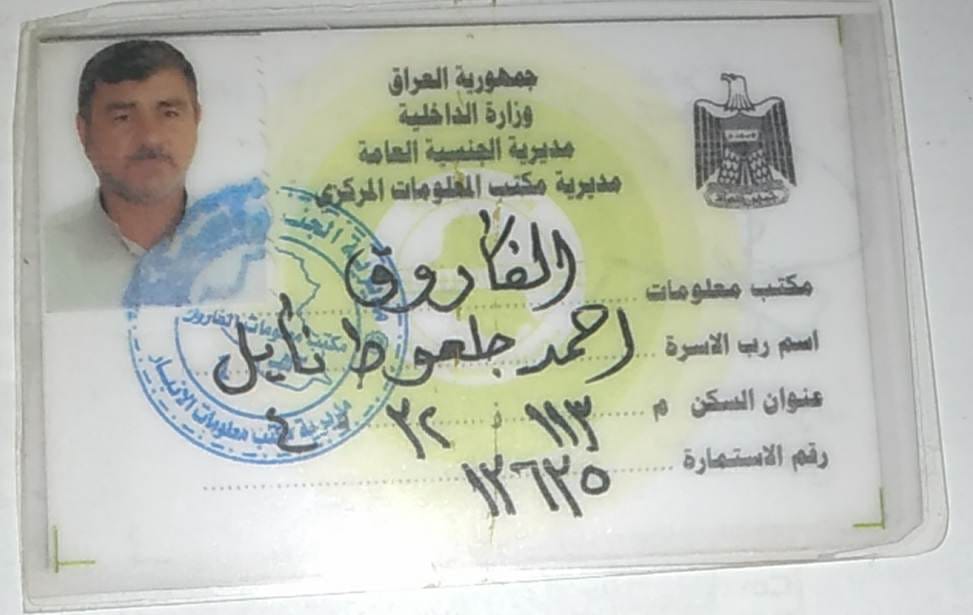 جمهورية العراق
وزارة الداخلية
مديرية الجنسية العامة
مديرية مكتب المعلومات المركزي
مكتب معلومات الفاروق
اسم رب الاسرة احمد جلعوط نايل
عنوان السكن م ١١٣ ز ٢٢ د ٤
رقم الاستمارة ١٢٦٢٥
جمهورية العراق
مكتب معلومات الفاروق
مديرية مكتب معلومات الانبار